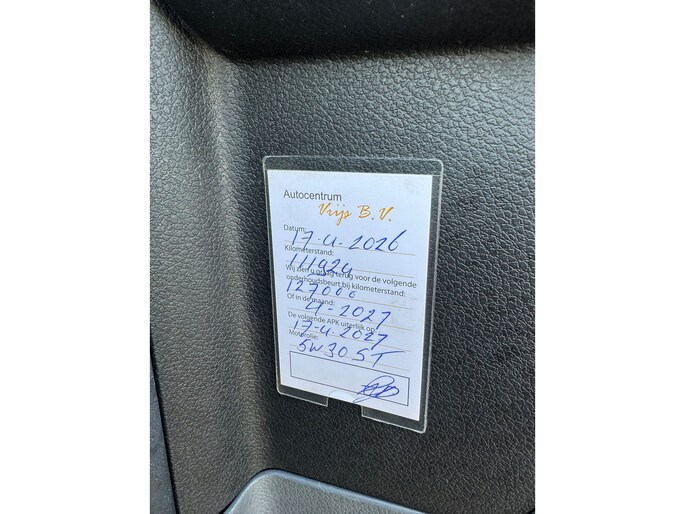 Autocentrum
Vrijs B.V.
Datum:
17-4-2026
Kilometerstand:
111924
Wij zien u graag terug voor de volgende
onderhoudsbeurt bij kilometerstand:
127000
Of in de maand:
4-2027
De volgende APK uiterlijk op:
17-4-2027
Motorolie:
5W30 ST